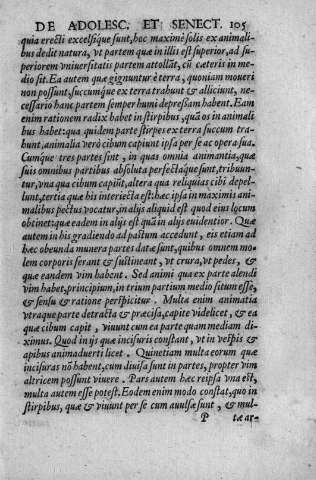 DE ADOLESC. ET SENECT. 105
quia erecti excelsique sunt, hoc maximè solis ex animali-
bus dedit natura, vt partem quæ in illis est superior, ad su-
periorem vniuersitatis partem attollāt, cū cæteris in me-
dio sit. Ea autem quæ gignuntur è terra, quoniam moueri
non possunt, succumque ex terra trahunt & alliciunt, ne-
cessario hanc partem semper humi depressam habent. Eam
enim rationem radix habet in stirpibus, quā os in animali
bus habet: qua quidem parte stirpes ex terra succum tra-
hunt, animalia verò cibum capiunt ipsa per se ac opera sua.
Cumque tres partes sint, in quas omnia animantia, quæ
suis omnibus partibus absoluta perfectaque sunt, tribuun-
tur, vna qua cibum capiūt, altera qua reliquias cibi depel-
lunt, tertia quæ his interiecta est: hæc ipsa in maximis ani-
malibus pectus vocatur, in alijs aliquid est quod eius locum
obtinet: quæ eadem in alijs est quā in alijs euidentior. Quæ
autem in his gradiendo ad pastum accedunt, eis etiam ad
hæc obeunda munera partes datæ sunt, quibus omnem mo-
lem corporis ferant & sustineant, vt crura, vt pedes, &
quæ eandem vim habent. Sed animi quæ ex parte alendi
vim habet, principium, in trium partium medio situm esse,
& sensu & ratione perspicitur. Multa enim animatia
vtraque parte detracta & præcisa, capite videlicet, & ea
quæ cibum capit, viuunt cum ea parte quam mediam di-
ximus. Quod in ijs quæ incisuris constant, vt in vespis &
apibus animaduerti licet. Quinetiam multa eorum quæ
incisuras nō habent, cum diuisa sunt in partes, propter vim
altricem possunt viuere. Pars autem hæc reipsa vna est,
multa autem esse potest. Eodem enim modo constat, quo in
stirpibus, quæ & viuunt per se cum auulsæ sunt, & mul-
P tæ ar-